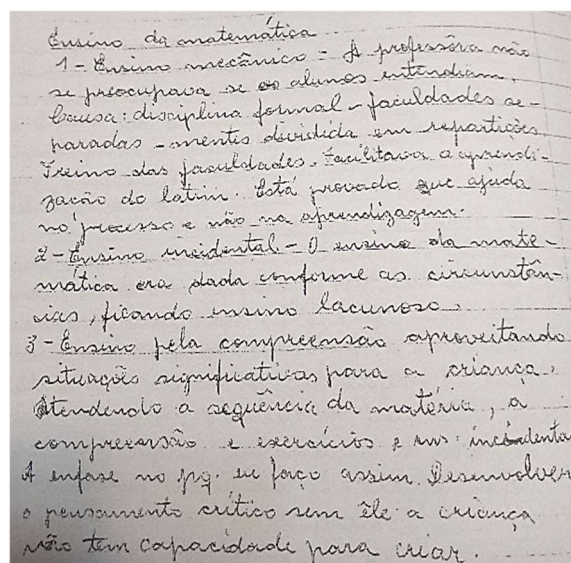 Ensino da matemática
1 - Ensino mecânico - A professôra não
se preocupava se os alunos entendiam.
Causa: disciplina formal - faculdades se-
paradas - mentes dividida em repartições
Treino das faculdades. Facilitava a aprendi-
zação do latim. Está provado que ajuda
no processo e não na aprendizagem.
2 - Ensino incidental - O ensino da mate-
mática era dada conforme as circunstân-
cias, ficando ensino lacunoso.
3 - Ensino pela compreensão aproveitando
situações significativas para a criança.
Atendendo a sequência da matéria, a
compreensão e exercícios e ens. incidental
A enfase no pq. eu faço assim. Desenvolver
o pensamento crítico sem êle a criança
não tem capacidade para criar.